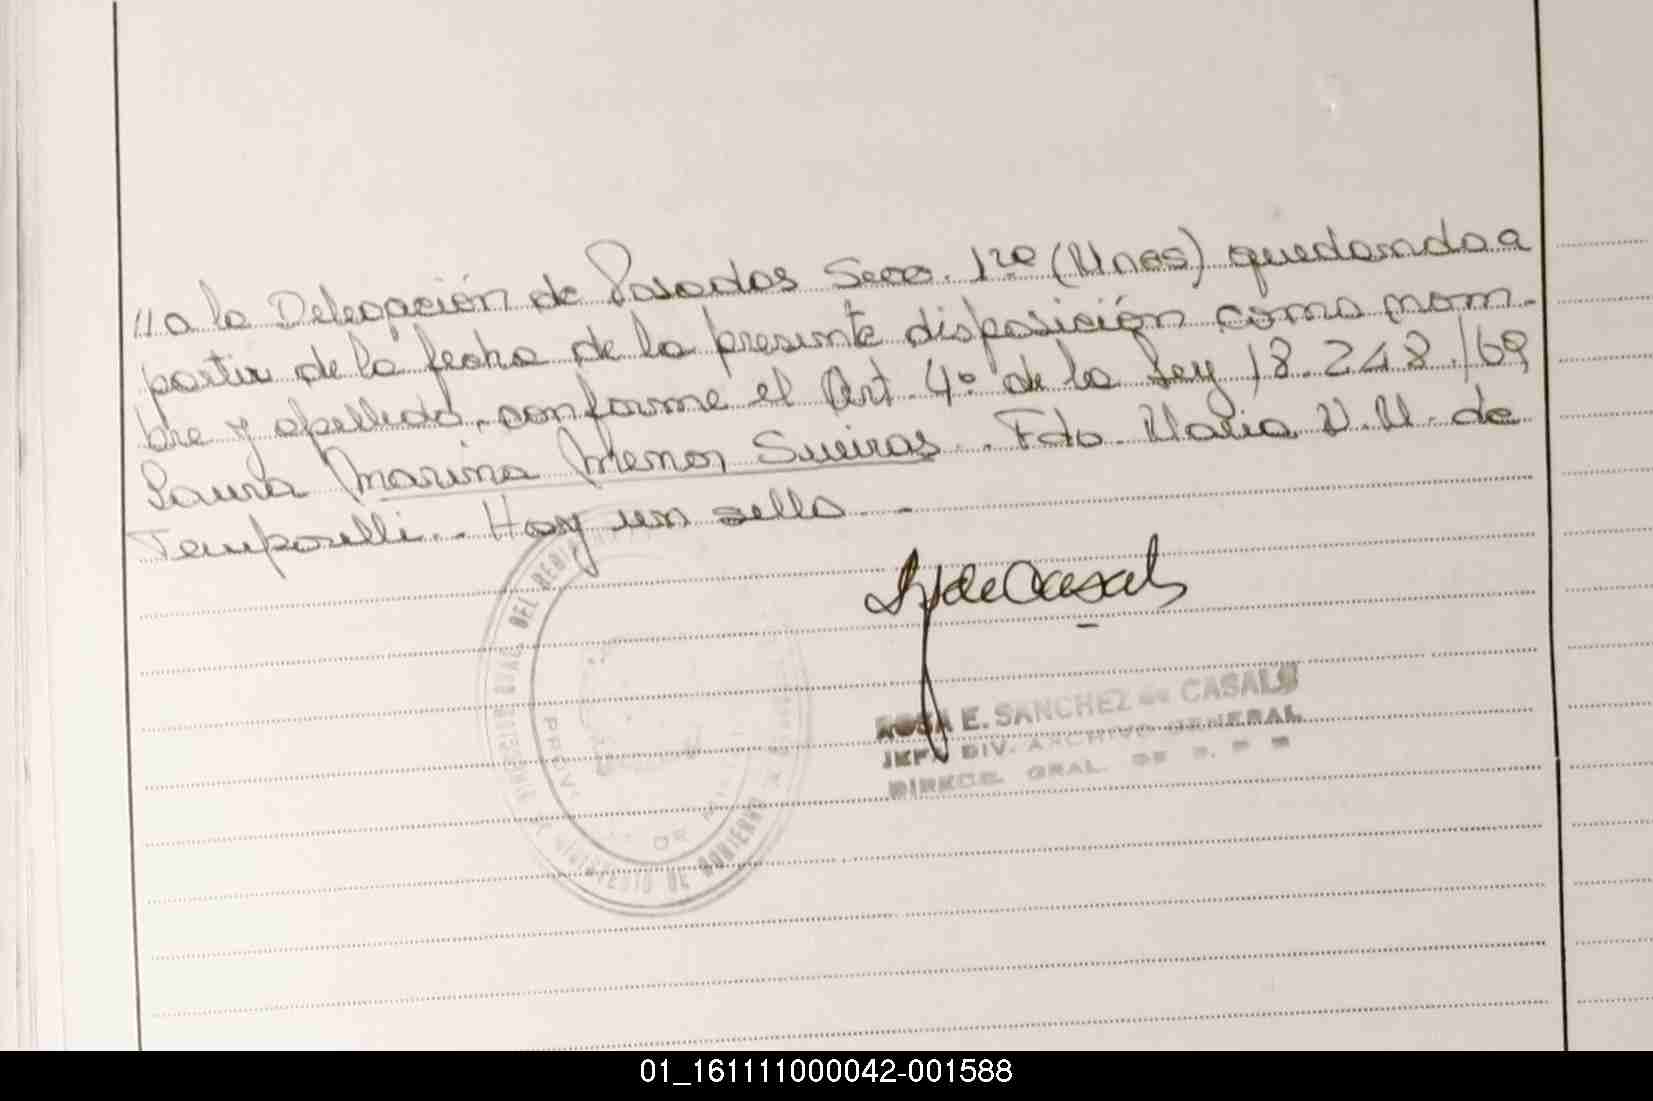 // a la Delegación de Posadas Secc. 1ra (Unos) quedando a
partir de la fecha de la presente disposición como nom-
bre y apellido, conforme el Art. 4º de la Ley 18.248/69,
Laura Marina Menor Sueiras. Fdo. Maria V. M. de
Temporelli. - Hay un sello -
SdeCasals
ROSA E. SANCHEZ de CASALS
JEFA DIV. ARCHIVO GENERAL
DIRECC. GRAL. DE
DEL REGI
PROV.
DE
MINISTERIO DE GOBIERNO
01_161111000042-001588